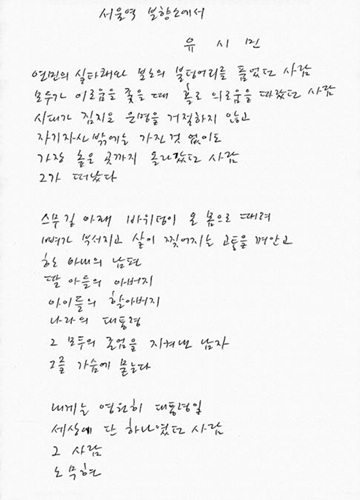 서울역 분향소에서
유 시 민
연민의 실타래와 분노의 불덩어리를 품었던 사람
모두가 이로움을 좇을 때 홀로 의로움을 따랐던 사람
시대가 짐지운 운명을 거절하지 않고
자기자신밖에는 가진것 없이도
가장 높은 곳까지 올라갔던 사람
그가 떠났다
스무길 아래 바위덩이 온 몸으로 때려
뼈가 부서지고 살이 찢어지는 고통을 껴안고
한 아내의 남편
딸 아들의 아버지
아이들의 할아버지
나라의 대통령
그 모두의 존엄을 지켜낸 남자
그를 가슴에 묻는다
내게는 영원히 대통령일
세상에 단 하나였던 사람
그 사람
노무현